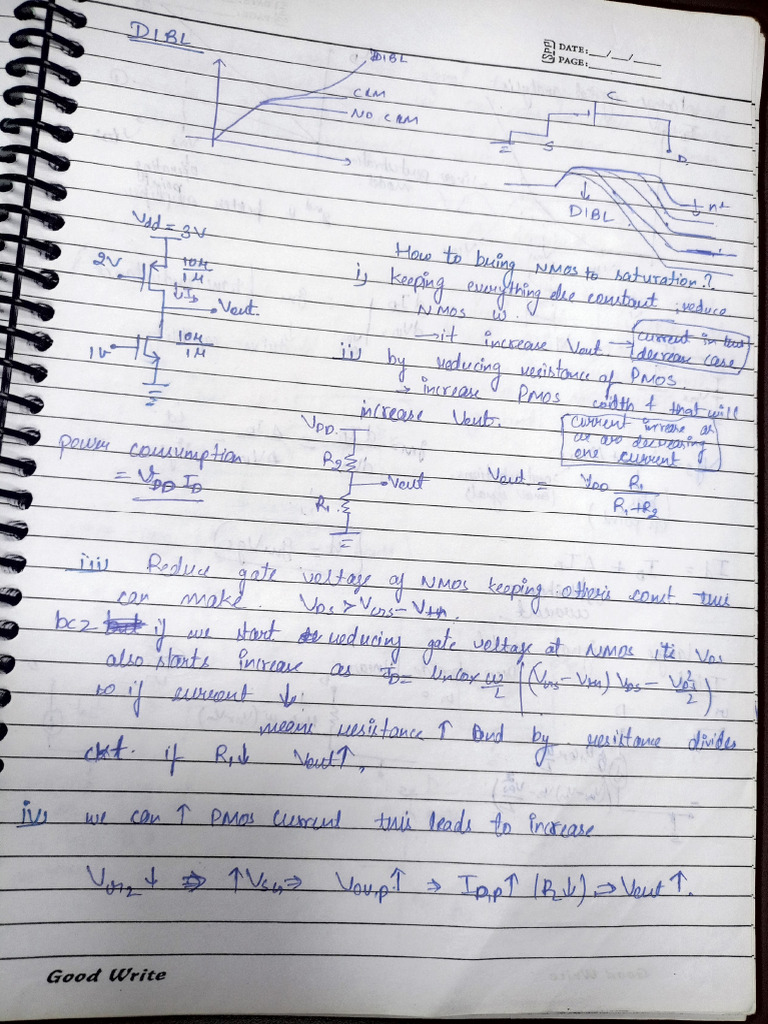 DIBL
DATE: __/__/__
PAGE:
DIBL
CLM
NO CLM
C
S
D
n+
DIBL
Vdd = 3V
2V
10μ
1μ
↓ID
Vout
1V
10μ
1μ
How to bring NMOS to saturation?
i) keeping everything else constant, reduce
NMOS w.
→ it increase Vout → current in this decrease case
ii) by reducing resistance of PMOS
→ increase PMOS width & that will
increase Vout.
current increase as we are decreasing one current
power consumption
= VDD ID
VDD
R2
Vout
R1
Vout = VDD R1 / R1+R2
iii) Reduce gate voltage of NMOS keeping others const this
can make VDS > VGS - VTHN.
bcz if we start reducing gate voltage at NMOS its VDS
also starts increase as ID = μn cox w/L [(VGS - VTH) VDS - VDS²/2)
so if current ↓
means resistance ↑ and by resistance divider
ckt. if R1↓ Vout↑.
iv) we can ↑ PMOS current this leads to increase
VG2 ↓ ⇒ ↑VSG ⇒ VOV,P ↑ ⇒ ID,P ↑ (R2↓) ⇒ Vout ↑.
Good Write